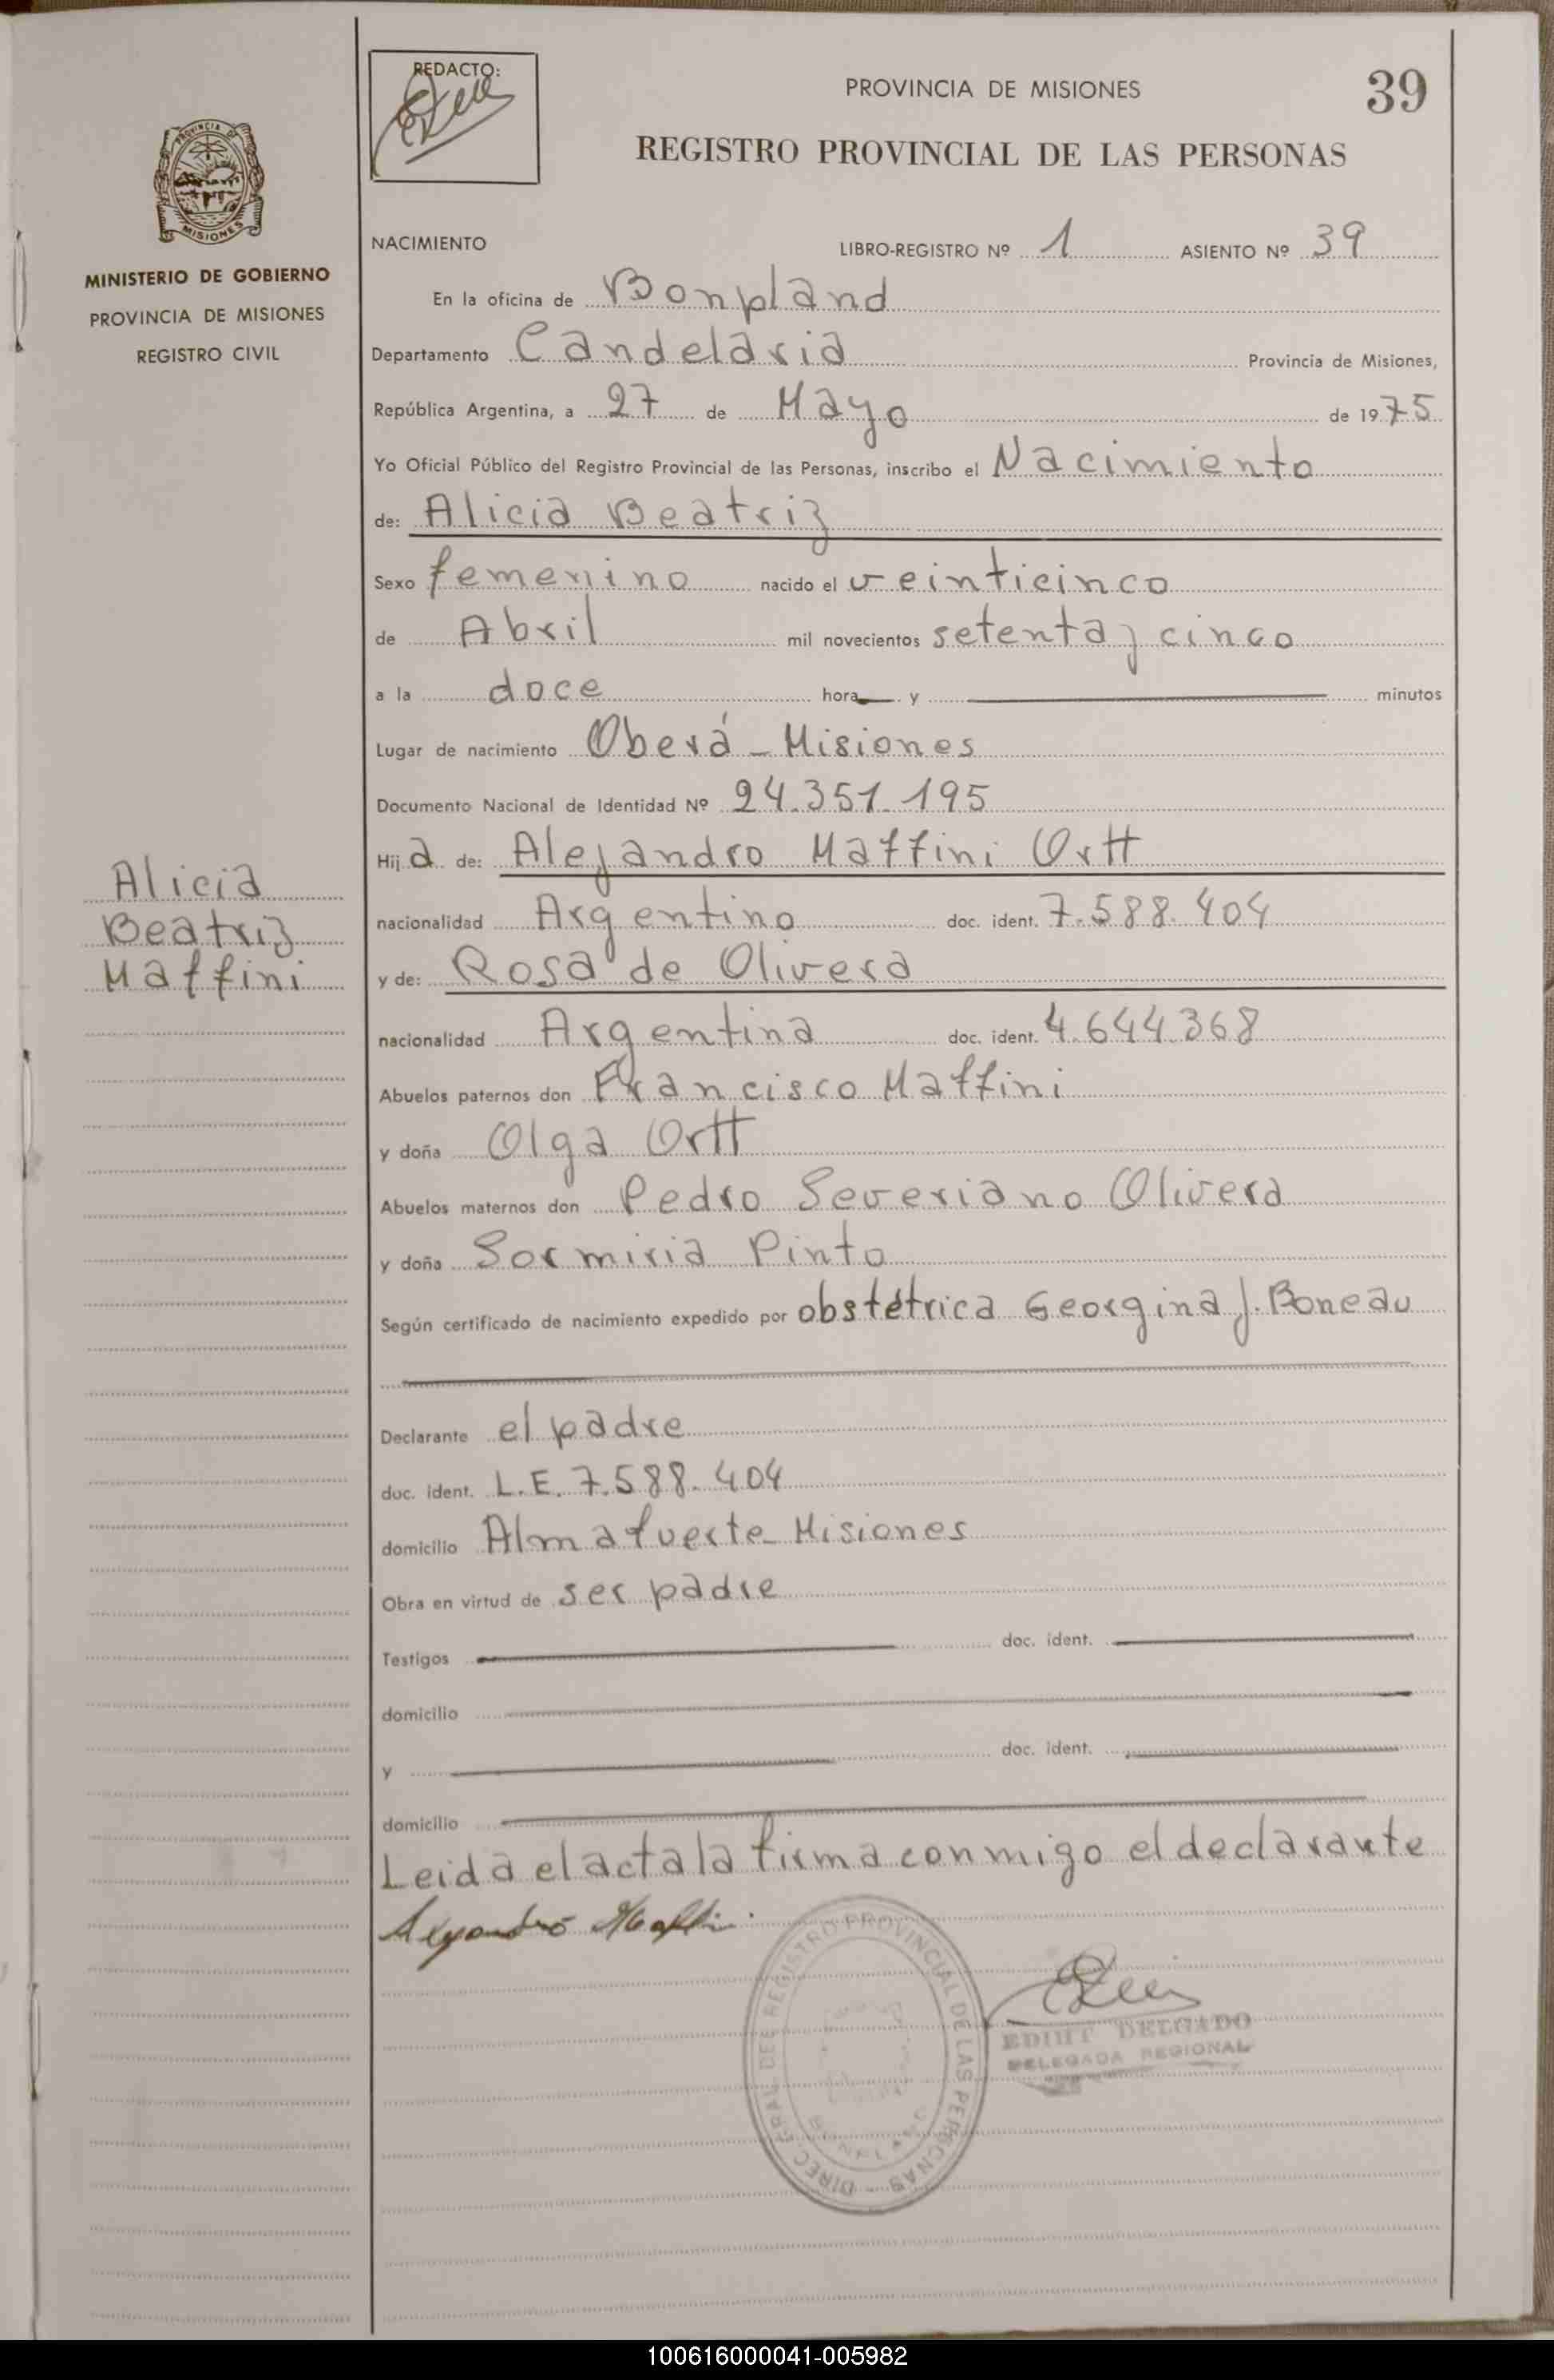 REDACTO:
PROVINCIA DE MISIONES
39
REGISTRO PROVINCIAL DE LAS PERSONAS
PROVINCIA DE
MISIONES
MINISTERIO DE GOBIERNO
PROVINCIA DE MISIONES
REGISTRO CIVIL
NACIMIENTO LIBRO-REGISTRO Nº 1 ASIENTO Nº 39
En la oficina de Bonpland
Departamento Candelaria Provincia de Misiones,
República Argentina, a 27 de Mayo de 1975
Yo Oficial Público del Registro Provincial de las Personas, inscribo el Nacimiento
de: Alicia Beatriz
Sexo femenino nacido el veinticinco
de Abril mil novecientos setenta y cinco
a la doce hora y minutos
Lugar de nacimiento Oberá - Misiones
Documento Nacional de Identidad Nº 24.351.195
Hija de: Alejandro Maffini Ortt
nacionalidad Argentino doc. ident. 7.588.404
y de: Rosa de Olivera
nacionalidad Argentina doc. ident. 4.644.368
Abuelos paternos don Francisco Maffini
y doña Olga Ortt
Abuelos maternos don Pedro Severiano Olivera
y doña Sormiria Pinto
Según certificado de nacimiento expedido por obstétrica Georgina J. Boneau
Declarante el padre
doc. ident. L.E. 7.588.404
domicilio Almafuerte - Misiones
Obra en virtud de ser padre
Testigos doc. ident.
domicilio
y doc. ident.
domicilio
Leida el acta la firma conmigo el declarante
Alejandro Maffini
Alicia
Beatriz
Maffini
DIREC. GRAL. DEL REGISTRO PROVINCIAL DE LAS PERSONAS
EDIHT DELGADO
DELEGADA REGIONAL
100616000041-005982